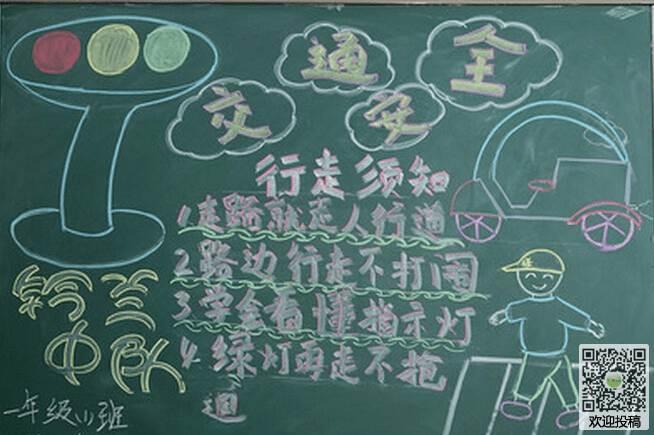 交通安全
行走须知
1.走路就走人行道
2.路边行走不打闹
3.学会看懂指示灯
4.绿灯再走不抢
道
铃兰
中队
一年级(1)班
欢迎投稿